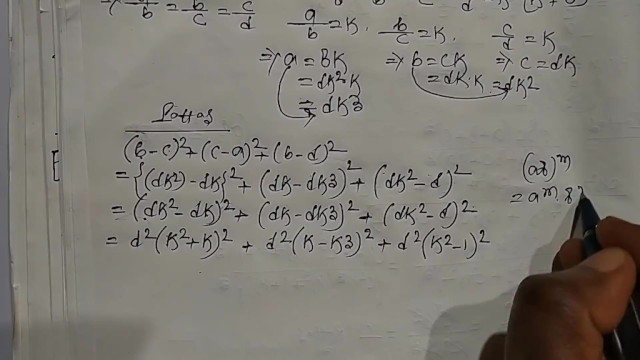 a/b = b/c = c/d
a/b = K, b/c = K, c/d = K
⇒ a = BK ⇒ b = CK ⇒ c = dK
= dK²K = dK·K = dK²
= dK3
(b-c)²+(c-a)²+(b-d)²
= {(dK²)-dK}² + (dK-dK3)² + (dK²-d)²
= (dK²-dK)² + (dK-dK3)² + (dK²-d)²
= d²(K²+K)² + d²(K-K3)² + d²(K²-1)²